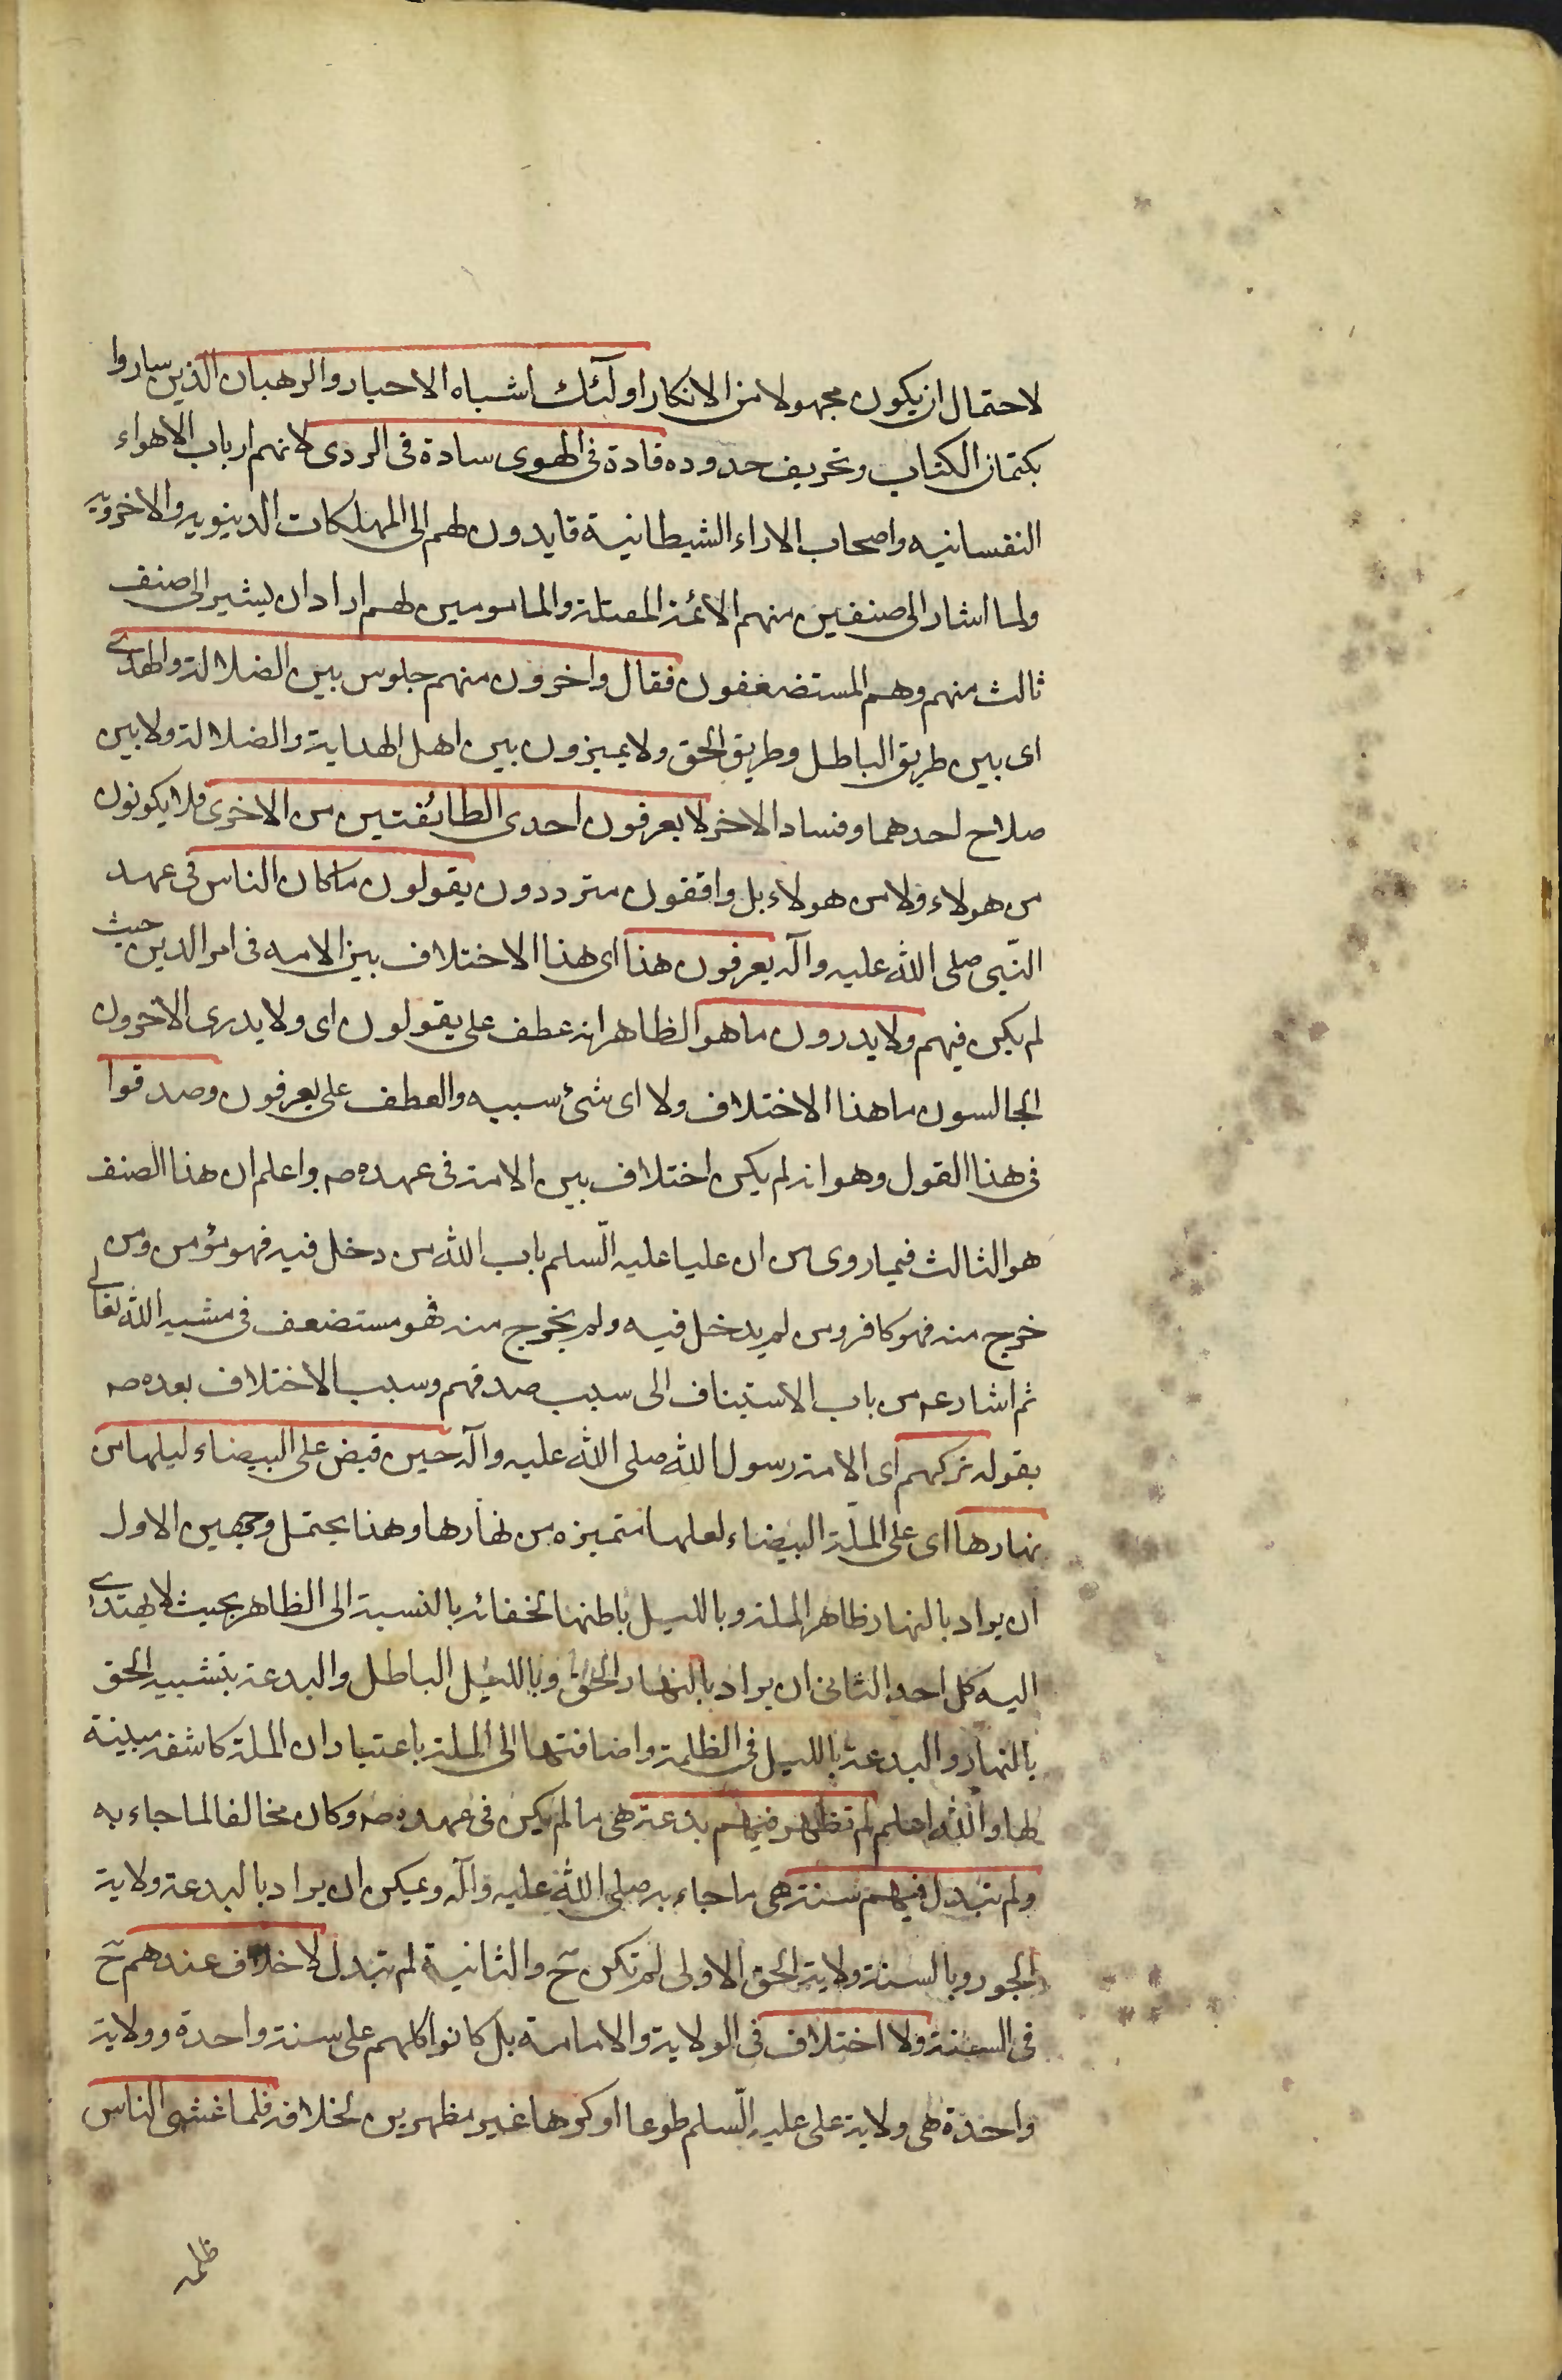 لاحتمال ان يكون مجهولا من الانكار اولئك اشباه الاحبار والرهبان الذين ساروا
بكتمان الكتاب وتحريف حدوده قادة فى الهوى سادة فى الردى لانهم ارباب الاهواء
النفسانيه واصحاب الاراء الشيطانية قايدون لهم الى المهلكات الدينويه والاخرويه
ولما اشار الى صنفين منهم الائمة المضلة والمامومين لهم اراد ان يشير الى صنف
ثالث منهم وهم المستضعفون فقال واخرون منهم جلوس بين الضلالة والهدى
اى بين طريق الباطل وطريق الحق ولا يميزون بين اهل الهداية والضلالة ولا بين
صلاح احدهما وفساد الاخر لا يعرفون احدى الطائفتين من الاخرى فلا يكونون
من هولاء ولا من هولاء بل واقفون مترددون يقولون ما كان الناس فى عهد
النّبى صلى الله عليه وآله يعرفون هذا اى هذا الاختلاف بين الامه فى امر الدين حيث
لم يكن فيهم ولا يدرون ما هو الظاهر انه عطف على يقولون اى ولا يدرى الاخرون
الجالسون ما هذا الاختلاف ولا اى شئ سببه والعطف على يعرفون وصدقوا
فى هذا القول وهو انه لم يكن اختلاف بين الامة فى عهده صه واعلم ان هذا الصنف
هو الثالث فيما روى من ان عليا عليه السّلم باب الله من دخل فيه فهو مؤمن ومن
خرج منه فهو كافر ومن لم يدخل فيه ولم يخرج منه فهو مستضعف فى مشيه الله تعالى
ثم اشار عم من باب الاستيناف الى سبب صدقهم وسبب الاختلاف بعده صه
بقوله تركهم اى الامة رسول الله صلى الله عليه وآله حين قبض على البيضاء ليلها من
نهارها اى على الملّة البيضاء لعلها متميزه من نهارها وهذا يحتمل وجهين الاول
ان يراد بالنهار ظاهر الملة وبالليل باطنها لخفائه بالنسبة الى الظاهر بحيث لا يهتدى
اليه كل احد الثانى ان يراد بالنهار الحق وبالليل الباطل والبدعة بتشبيه الحق
بالنهار والبدعة بالليل فى الظلمة واضافتها الى الملة باعتبار ان الملة كاشفه مبينة
لها والله اعلم لم تظهر فيهم بدعة هى ما لم يكن فى عهده صه وكان مخالفا لما جاء به
ولم تبدل فيهم سنة هى ما جاء به صلى الله عليه وآله ويمكن ان يراد بالبدعة ولاية
الجور وبالسنة ولاية الحق الاولى لم تكن ح والثانية لم تبدل لا خلاف عندهم ح
فى السنة ولا اختلاف فى الولاية والامامة بل كانوا كلهم على سنة واحدة وولاية
واحدة هى ولاية على عليه السّلم طوعا او كرها غير مظهرين لخلافه فلما غشى الناس
ظلمة